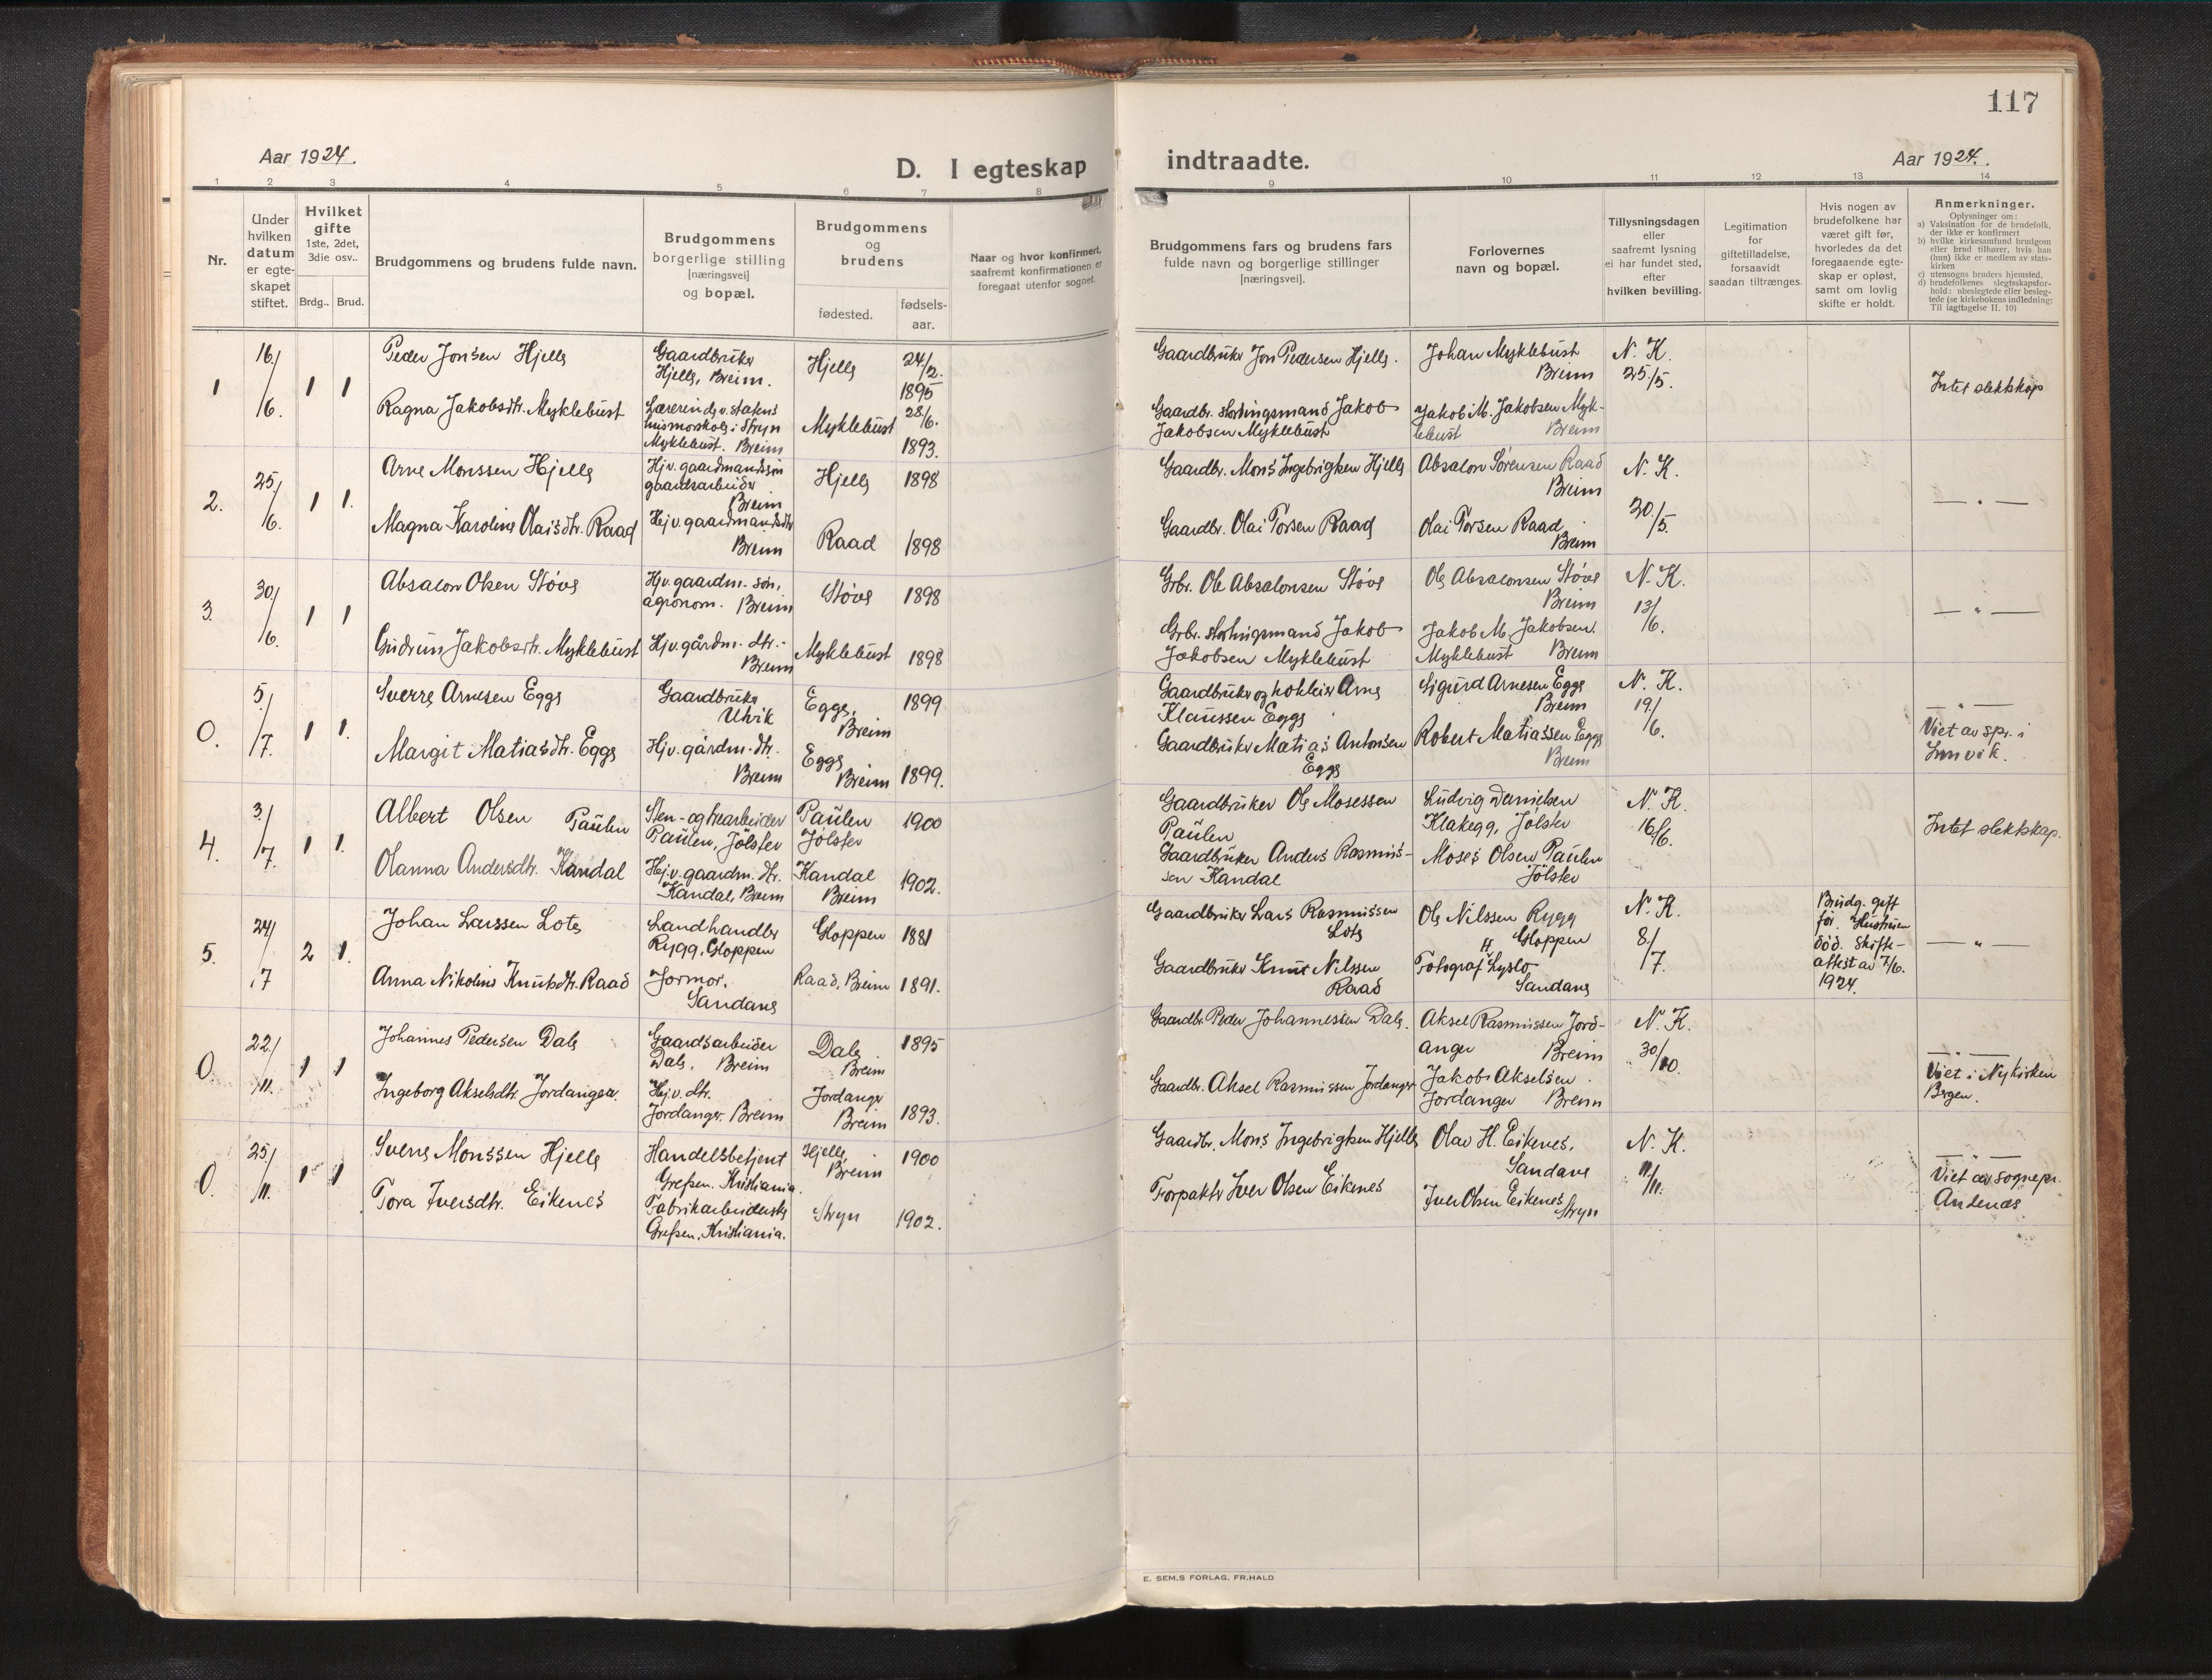 117
Aar 1924.
D. I egteskap
indtraadte.
Aar 1924.
1 2 3 4 5 6 7 8 9 10 11 12 13 14
Nr.
Under
hvilken
datum
er egte-
skapet
stiftet.
Hvilket
gifte
1ste, 2det,
3die osv..
Brdg..
Brud.
Brudgommens og brudens fulde navn.
Brudgommens
borgerlige stilling
[næringsvei]
og bopæl.
Brudgommens
og
brudens
fødested.
fødsels-
aar.
Naar og hvor konfirmert,
saafremt konfirmationen er
foregaat utenfor sognet.
Brudgommens fars og brudens fars
fulde navn og borgerlige stillinger
[næringsvei].
Forlovernes
navn og bopæl.
Tillysningsdagen
eller
saafremt lysning
ei har fundet sted,
efter
hvilken bevilling.
Legitimation
for
giftetilladelse,
forsaavidt
saadan tiltrænges.
Hvis nogen av
brudefolkene har
været gift før,
hvorledes da det
foregaaende egte-
skap er opløst,
samt om lovlig
skifte er holdt.
Anmerkninger.
Oplysninger om:
a) Vaksination for de brudefolk,
der ikke er konfirmert
b) hvilke kirkesamfund brudgom
eller brud tilhører, hvis han
(hun) ikke er medlem av stats-
kirken
c) utensogns bruders hjemsted.
d) brudefolkenes slegtsskapsfor-
hold: ubeslegtede eller besleg-
tede (se kirkebokens indledning:
Til iagttagelse II. 10)
1
16/6.
1 1
Peder Jonsen Hjelle
Gaardbruker
Hjelle, Breim.
Hjelle
24/2.
1895
Ragna Jakobsdtr. Myklebust
Lærerinde v. statens
husmorskole i Stryn
Myklebust. Breim
Myklebust
28/6.
1893.
Gaardbruker Jon Pedersen Hjelle.
Gaardbr. stortingsmand Jakob
Jakobsen Myklebust
Johan Myklebust
Breim
Jakob M. Jakobsen Myk-
lebust Breim
N. K.
25./5.
Intet slektskap
2.
25/6.
1 1.
Arne Monssen Hjelle
Hjv. gaardmandssøn
gaardsarbeider
Breim
Hjelle 1898
Magna Karoline Olaisdtr. Raad
Hjv. gaardmandsdtr
Breim
Raad 1898
Gaardbr. Mons Ingebrigtsen Hjelle
Gaardbr. Olai Torsen Raad
Absalon Sørensen Raad
Breim
Olai Torsen Raad
Breim
N. K.
20./5.
— " —
3.
30/6.
1 1
Absalon Olsen Støve
Hjv. gaardm. søn,
agronom. Breim
Støve 1898
Gudrun Jakobsdtr. Myklebust
Hjv. gårdm. dtr.
Breim
Myklebust 1898
Grbr. Ole Absalonsen Støve
Grbr. stortingsmand Jakob
Jakobsen Myklebust
Ole Absalonsen Støve
Breim
Jakob M. Jakobsen
Myklebust Breim
N. K.
13/6.
— " —
0.
5/7.
1 1.
Sverre Arnesen Egge
Gaardbruker
Utvik
Egge,
Breim
1899
Margit Matiasdtr. Egge
Hjv. gårdm. dtr.
Breim
Egge
Breim 1899.
Gaardbruker og hotleier Arne
Klaussen Egge
Gaardbruker Matias Antonsen
Egge
Sigurd Arnesen Egge
Breim
Robert Matiassen Egge
Breim
N. K.
19/6.
— " —
Viet av spr. i
Innvik.
4.
3/7.
1 1.
Albert Olsen Paulen
Sten- og trearbeider
Paulen, Jølster
Paulen
Jølster
1900
Olanna Andersdtr. Kandal
Hj.v. gaardm. dtr.
Kandal, Breim
Kandal
Breim
1902.
Gaardbruker Ole Mosessen
Paulen
Gaardbruker Anders Rasmus-
sen Kandal
Ludvig Danielsen
Klakegg, Jølster
Moses Olsen Paulen
Jølster
N. K.
16/6.
Intet slektskap.
5.
24/7
2 1.
Johan Larssen Lote
Landhandler
Rygg, Gloppen
Gloppen 1881
Anna Nikoline Knutsdtr. Raad
Jormor.
Sandane
Raad, Breim 1891.
Gaardbruker Lars Rasmussen
Lote
Gaardbruker Knut Nilssen
Raad
Ole Nilssen Rygg
Gloppen
Fotograf H. Lyslo
Sandane
N. K.
8/7.
Brudg. gift
før. Hustruen
død. Skifte-
attest av 7/6.
1924.
— " —
0.
22/11.
1 1
Johannes Pedersen Dale
Gaardsarbeider
Dale. Breim
Dale
Breim
1895
Ingeborg Akselsdtr. Jordanger.
Hj.v. dtr.
Jordanger. Breim
Jordanger
Breim 1893.
Gaardbr. Peder Johannessen Dale.
Gaardbr. Aksel Rasmussen Jordanger
Aksel Rasmussen Jord-
anger Breim
Jakob Akselsen
Jordanger Breim
N. K.
30/10.
— " —
Viet i Nykirken
Bergen.
0.
25/11.
1 1
Sverre Monssen Hjelle
Handelsbetjent
Grefsen. Kristiania.
Hjelle,
Breim
1900
Tora Iversdtr. Eikenes
Fabrikarbeiderske
Grefsen, Kristiania.
Stryn 1902.
Gaardbr. Mons Ingebrigtsen Hjelle
Forpakter Iver Olsen Eikenes
Olav H. Eikenes,
Sandane
Iver Olsen Eikenes
Stryn
N. K.
11/11.
— " —
Viet av sognepr.
Andenæs
E. SEM,S FORLAG, FR.HALD